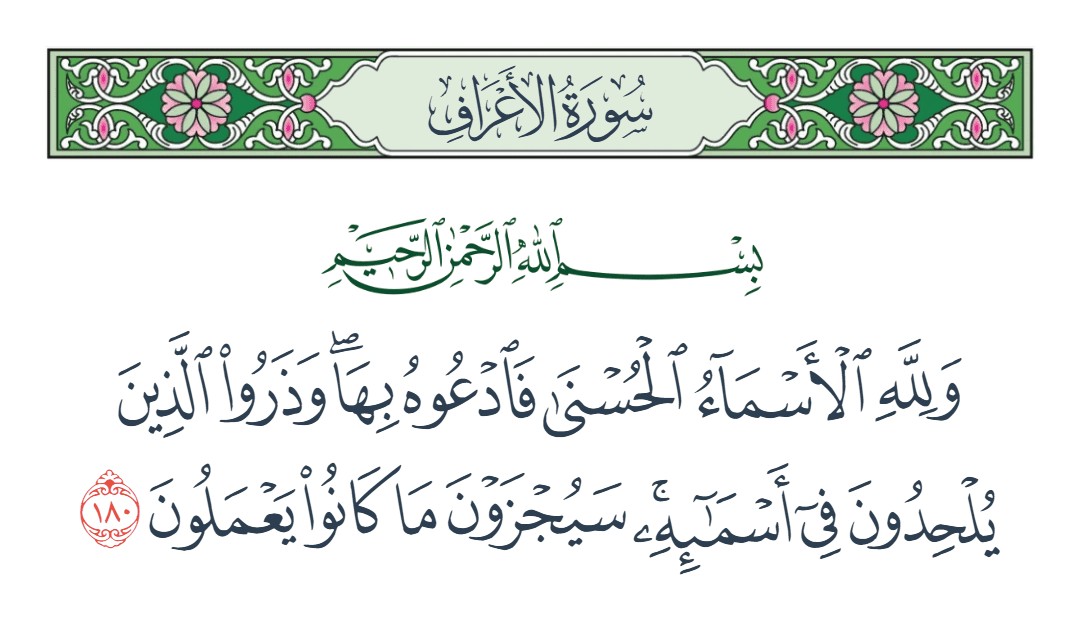 سُورَةُ الأَعْرَافِ
بِسْمِ ٱللَّهِ ٱلرَّحْمَٰنِ ٱلرَّحِيمِ
وَلِلَّهِ ٱلْأَسْمَآءُ ٱلْحُسْنَىٰ فَٱدْعُوهُ بِهَا ۖ وَذَرُوا۟ ٱلَّذِينَ
يُلْحِدُونَ فِىٓ أَسْمَـٰٓئِهِۦ ۚ سَيُجْزَوْنَ مَا كَانُوا۟ يَعْمَلُونَ ١٨٠